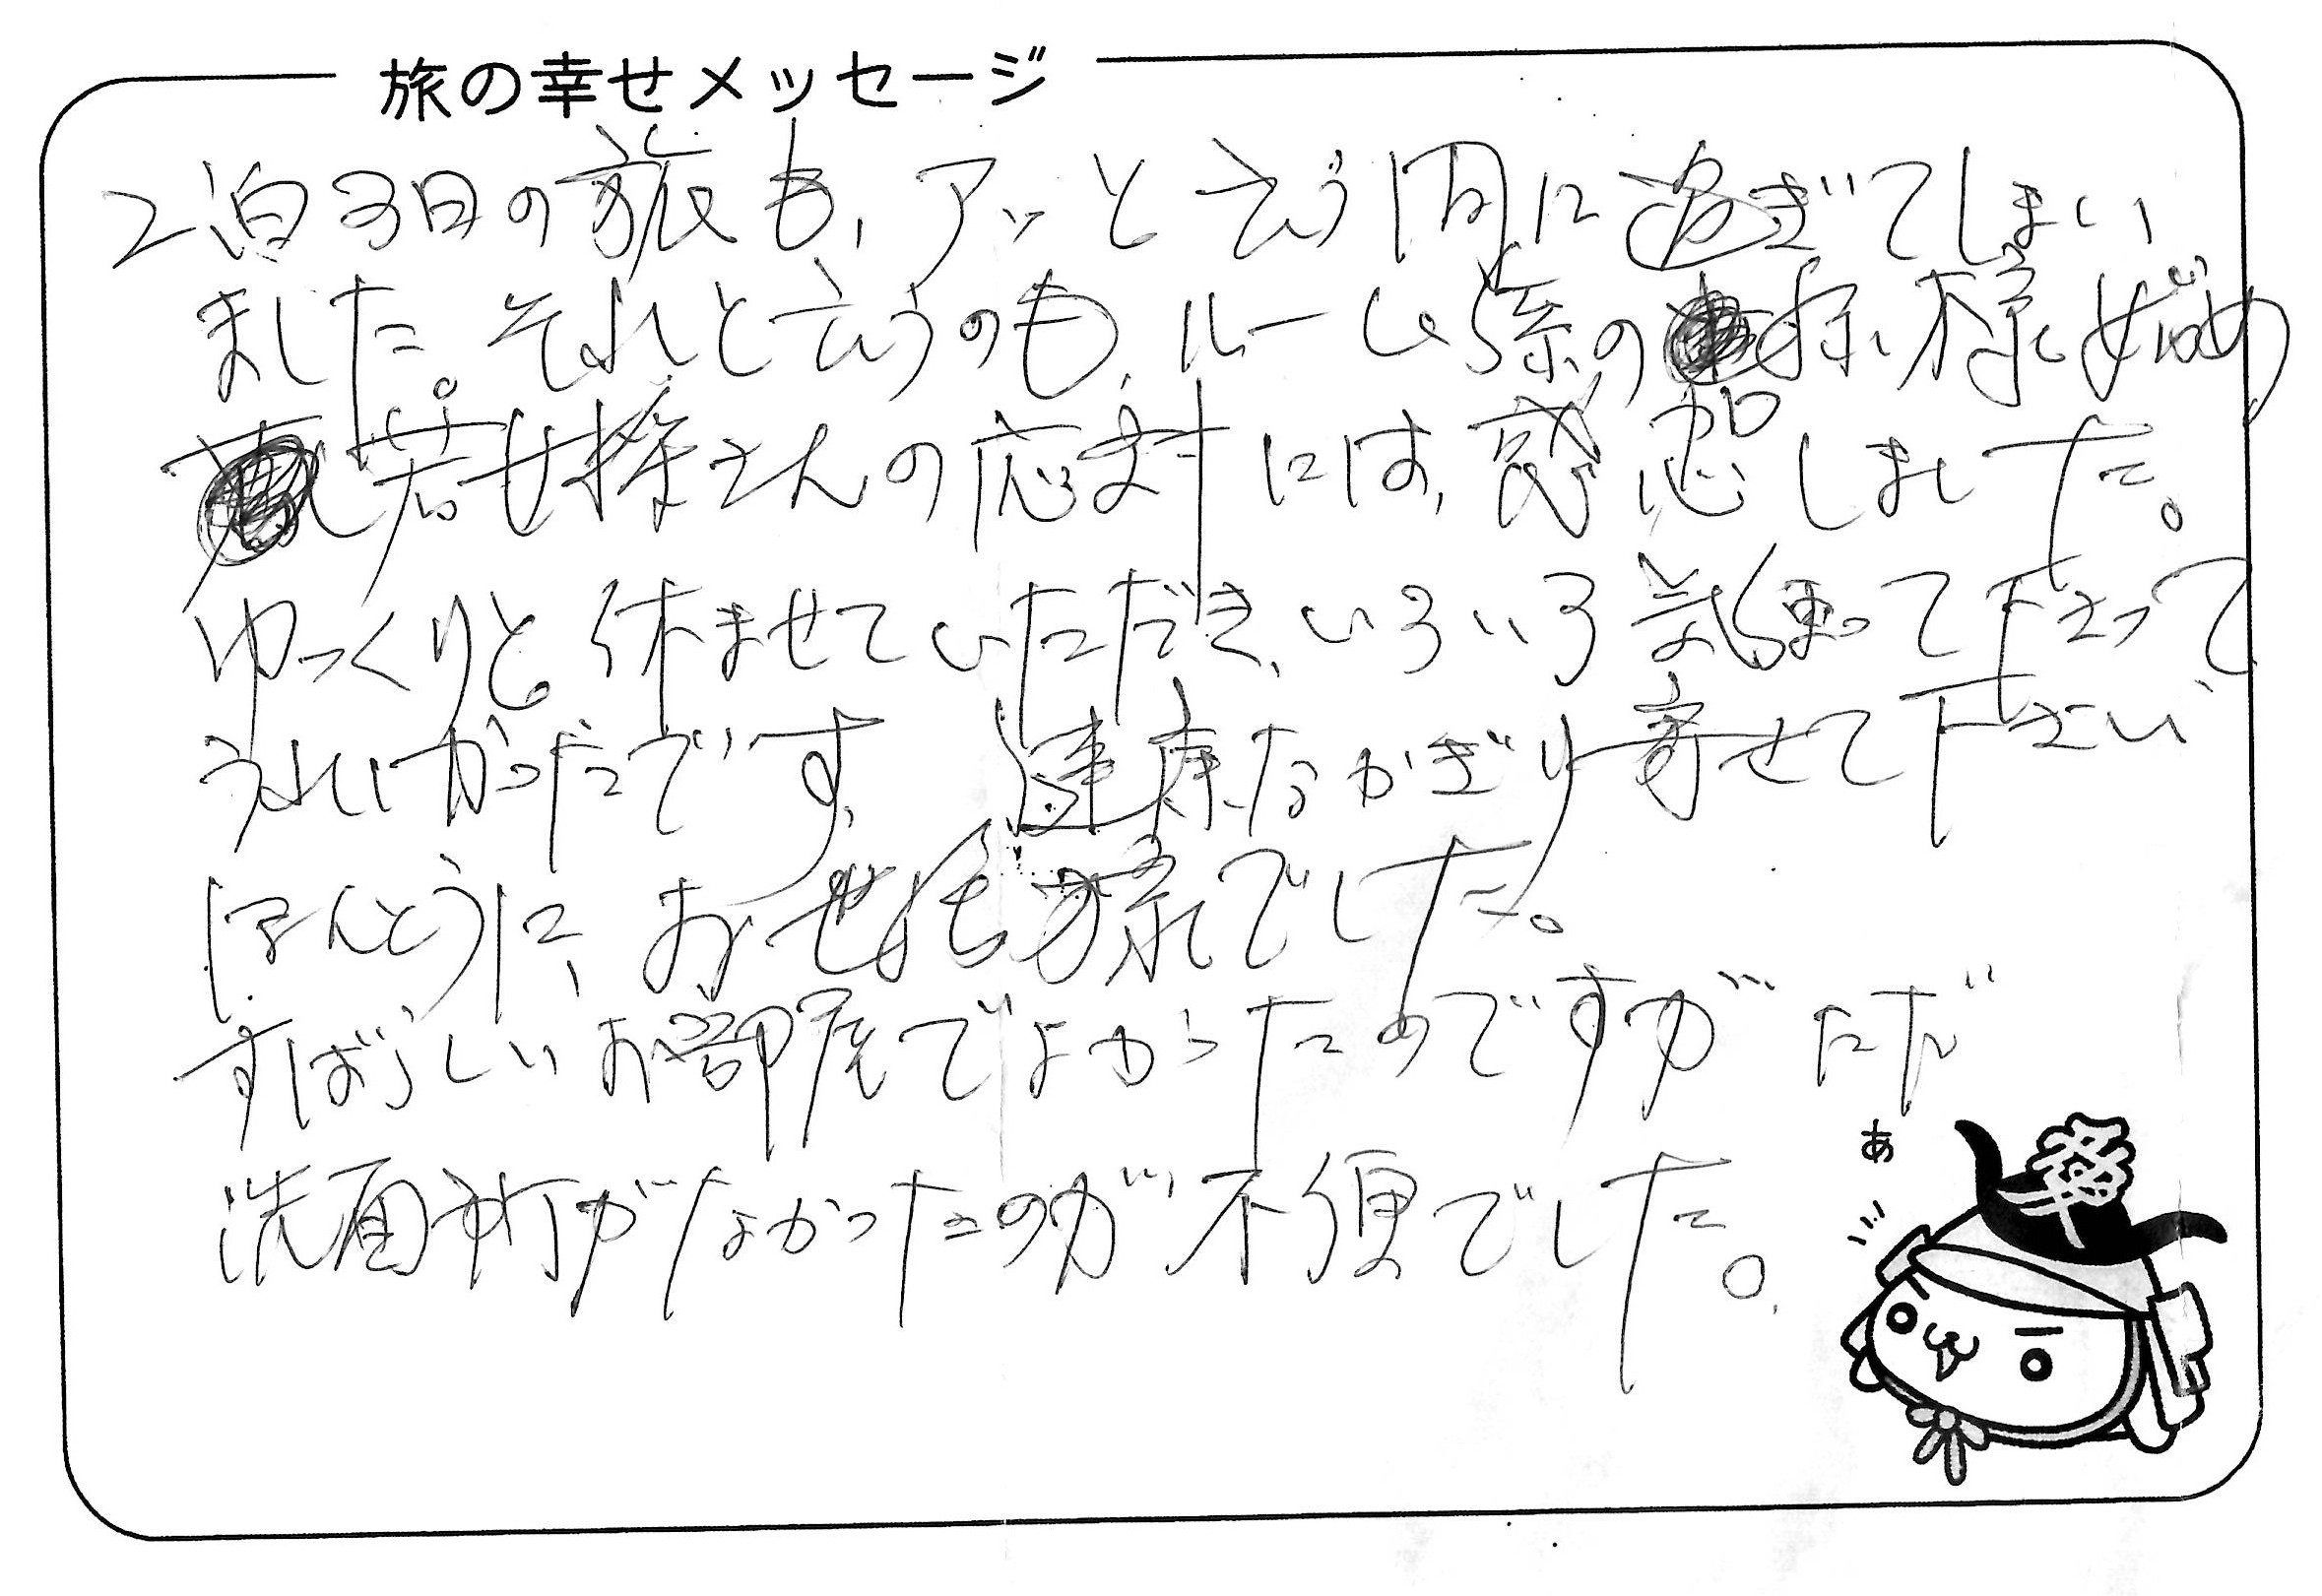 旅の幸せメッセージ
2泊3日の旅も、アッと云う間に過ぎてしまい
ました。それと云うのも、ルーム係の
若女将さんの応対には、感謝しました。
ゆっくりと休ませていただき、いろいろ気使って下さって
うれしかったです。健康なかぎり寄せて下さい
ほんとうに、お世話様でした。
すばらしいお部屋でよかったのですが ただ
洗面灯がなかったのが不便でした。
あ
幸